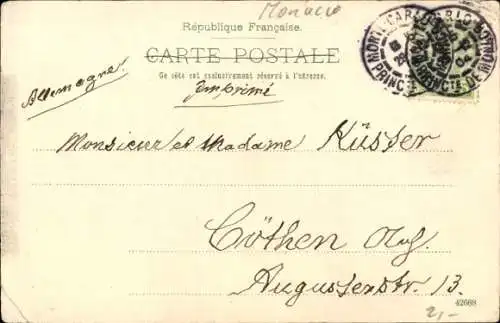 Monaco
République Française.
CARTE POSTALE
Ce côté est exclusivement réservé à l'adresse.
Allemagne!
Imprimé
MONTE-CARLO
PRINCTÉ DE MONACO
Monsieur et Madame Küsser
Cöthen Anh.
Augustenstr. 13.
42669
2,-